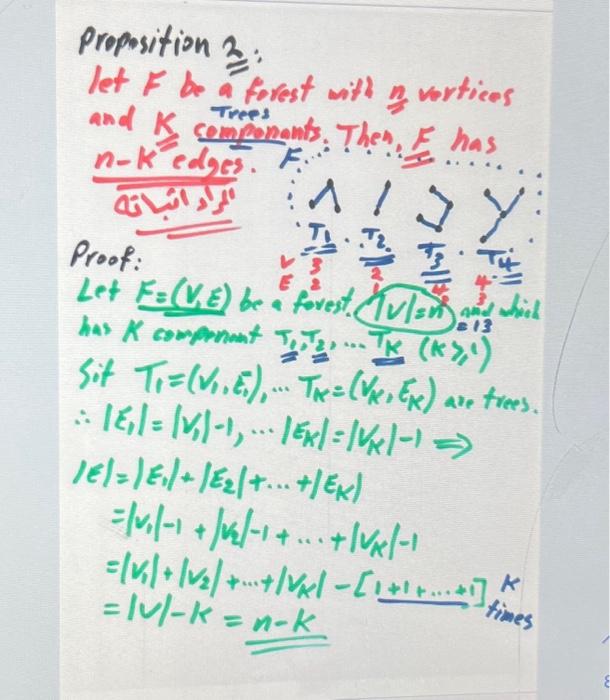 Proposition 2:
let F be a forest with n vertices
Trees
and K componants. Then, F has
n-K edges. F
المراد اثباته
T1 T2 T3 T4
V 3 2 4 4
E 2 1 3 3
Proof:
Let F=(V,E) be a forest. |V|=n and which
=13
has K component T1, T2, ... TK (K≥1)
Sit T1=(V1,E1), ... TK=(VK,EK) are trees.
∴ |E1|=|V1|-1, ... |EK|=|VK|-1 ⇒
|E|=|E1|+|E2|+...+|EK|
=|V1|-1+|V2|-1+...+|VK|-1
=|V1|+|V2|+...+|VK|-[1+1+...+1] K times
=|V|-K = n-K